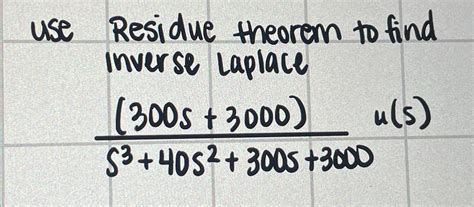 use Residue theorem to find
inverse Laplace
(300s + 3000) u(s)
s³+40s²+300s+3000